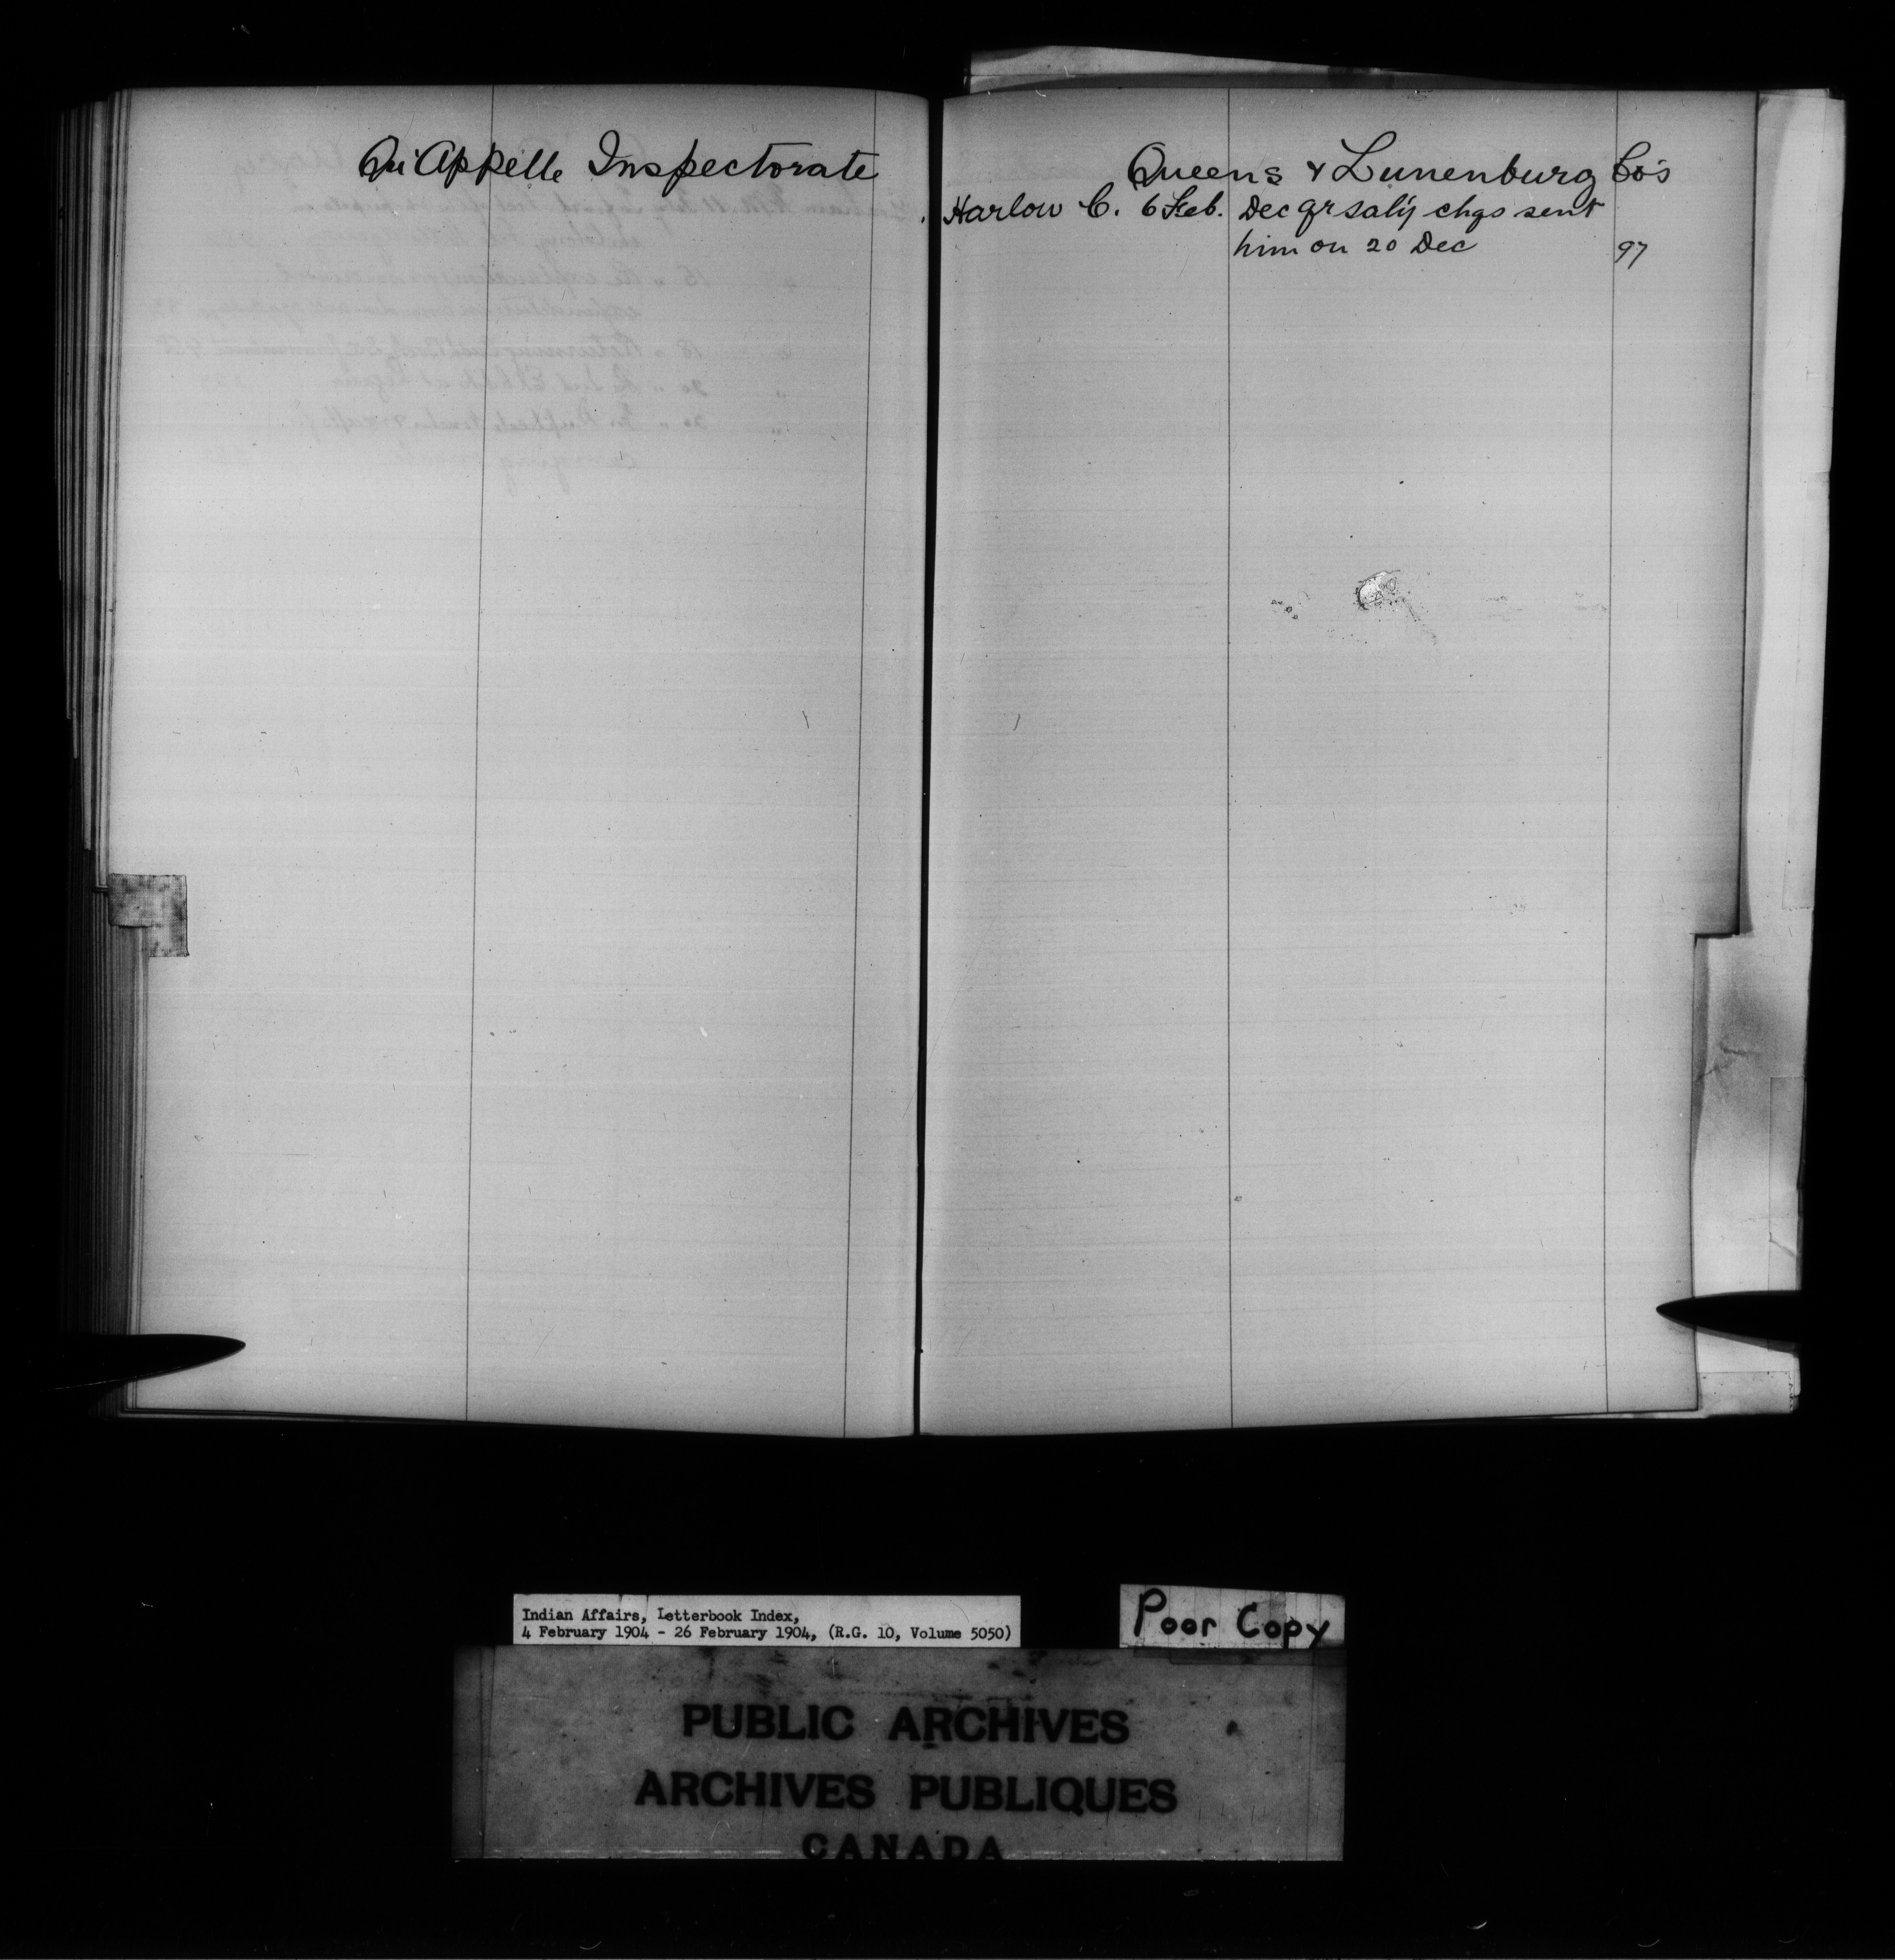 Qu'Appelle Inspectorate
Queens & Lunenburg Co's
Harlow C. 6 Feb. Dec qr saly chqs sent
him on 20 Dec 97
Indian Affairs, Letterbook Index,
4 February 1904 - 26 February 1904, (R.G. 10, Volume 5050)
Poor Copy
PUBLIC ARCHIVES
ARCHIVES PUBLIQUES
CANADA